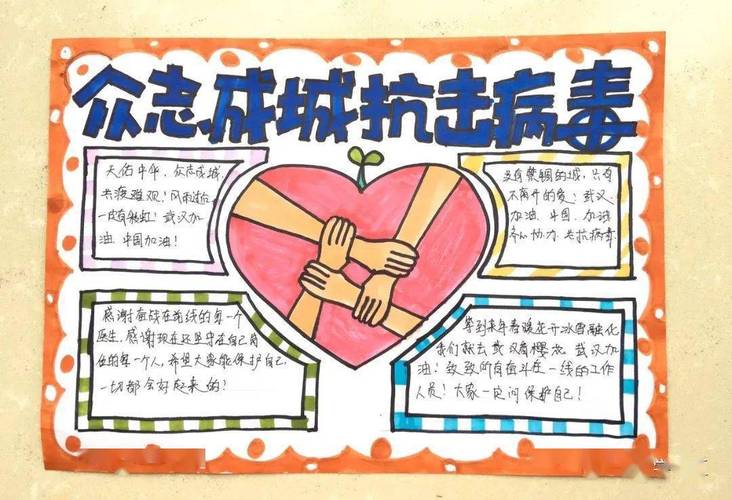 众志成城抗击病毒
天佑中华，众志成城，
共渡难观！风雨过后
一定有彩虹！武汉加
油，中国加油！
没有禁锢的城，只有
不离开的爱！武汉
加油，中国，加油
齐心协力，共抗病毒
感谢奋战在前线的每一个
医生，感谢现在还坚守在自己岗
位的每一个人，希望大家能保护自己，
一切都会好起来的！
等到来年春暖花开冰雪融化
我们就去武汉看樱花，武汉加
油！致敬所有奋斗在一线的工作
人员！大家一定问保护自己！